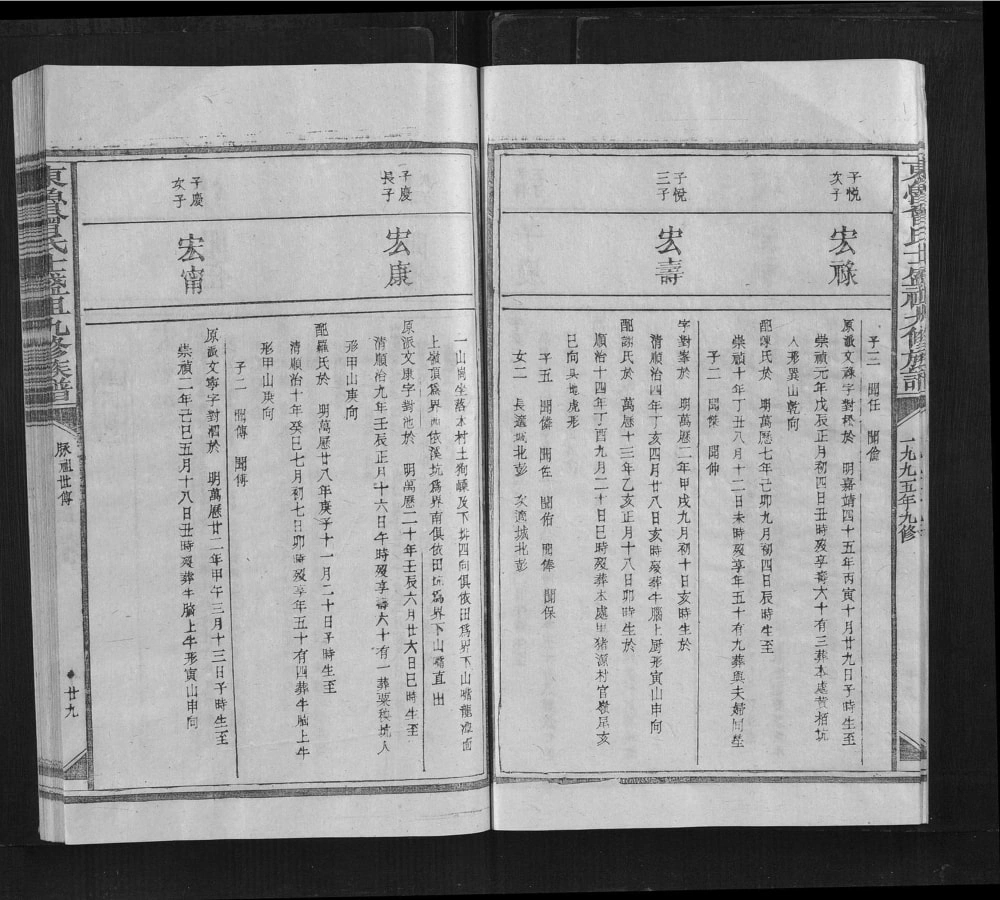 子悅
次子
宏祿
子三 聞任 聞儉
原派文祿字對 於 明嘉靖四十五年丙寅十月廿九日子時生至
崇禎元年戊辰正月初四日丑時歿享壽六十有三葬本處黃栢坑
人形巽山乾向
配陳氏於 明萬曆七年己卯九月初四日辰時生至
崇禎十年丁丑八月十二日未時歿享年五十有九葬與夫婦同塋
子二 聞傑 聞伸
子悅
三子
宏壽
字對峯於 明萬曆二年甲戌九月初十日亥時生於
清順治四年丁亥四月廿八日亥時歿葬牛腦上厨形寅山申向
配謝氏於 萬曆十三年乙亥正月十八日卯時生於
順治十四年丁酉九月二十日巳時歿葬本處 猪源村官嶺 亥
巳向 地虎形
子五 聞儔 聞佐 聞佑 聞俸 聞保
女二 長適城北彭 次適城北彭
一山崗坐落本村土狗 及下 四向俱依田爲界下山嘴龍 面
上嶺頂爲界西依溪坑爲界南俱依田坑爲界下山嘴直出
子慶
長子
宏康
原派文康字對池於 明萬曆二十年壬辰六月廿六日巳時生至
清順治九年壬辰正月十六日午時歿享壽六十有一葬粟 坑人
形甲山庚向
配羅氏於 明萬曆廿八年庚子十一月二十日子時生至
清順治十年癸巳七月初七日卯時歿享年五十有四葬牛腦上牛
形甲山庚向
子二 聞傳 聞傅
子慶
次子
宏甯
原派文寧字對 於 明萬曆廿二年甲午三月十三日子時生至
崇禎二年己巳五月十八日丑時歿葬牛腦上牛形寅山申向
東魯曾氏士盛祖九修族譜
一九九五年九修
東魯曾氏士盛祖九修族譜
脉祖世傳
廿九